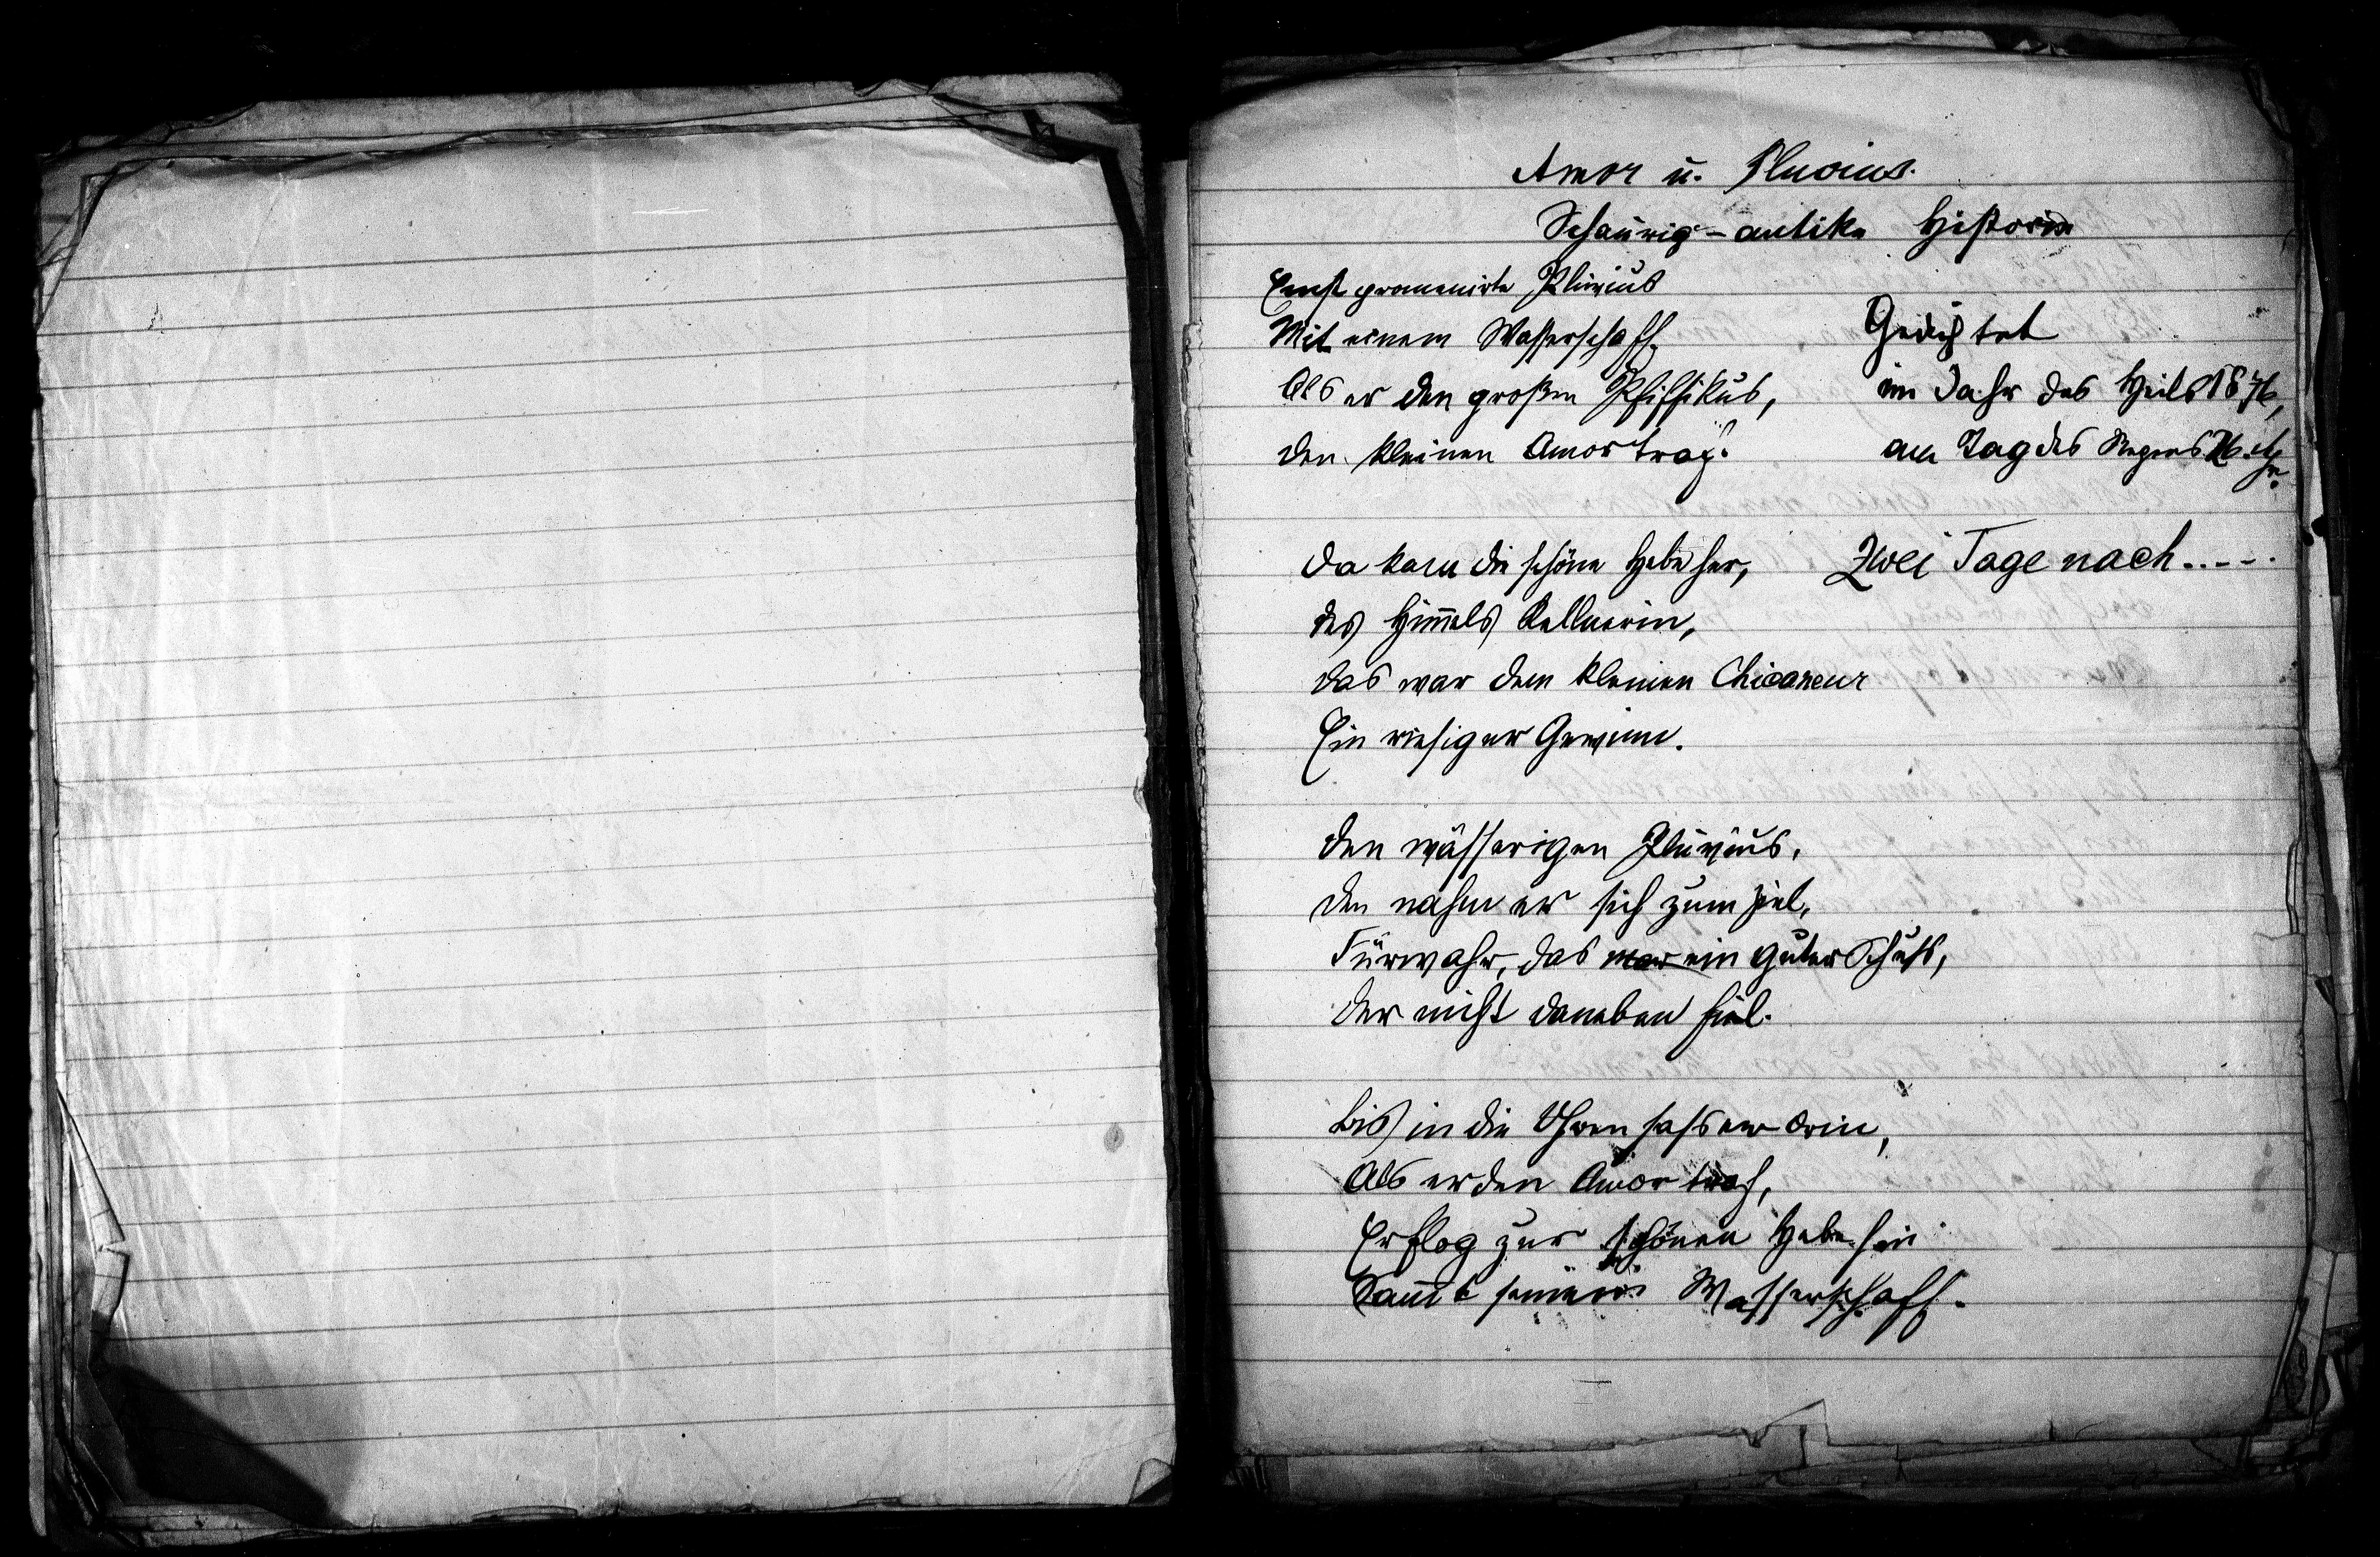 Amor u. Pluvius.
Schaurig-antike Historie
Einst promenirte Pluvius
Mit einem Wasserschaff.
Als er den großen Pfiffikus,
den kleinen Amor traf.
Gedichtet
im Jahr des Heils 1876,
am Tag des Regens 26. Apr.
Zwei Tage nach.....
Da kam die schöne Hebe her,
des Him̄els Kellnerin,
das war dem kleinen Chicaneur
Ein riesiger Gewinn.
Den wässerigen Pluvius,
den nahm er sich zum Ziel,
Fürwahr, das war ein guter Schuß,
der nicht daneben fiel.
Bis in die Ohren saß er drin,
Als er den Amor traf,
Er flog zur schönen Hebe hin
Sam̄t seinem Wasserschaff.